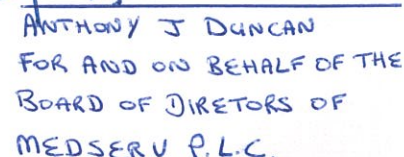 ANTHONY J DUNCAN
FOR AND ON BEHALF OF THE
BOARD OF DIRETORS OF
MEDSERV P.L.C.